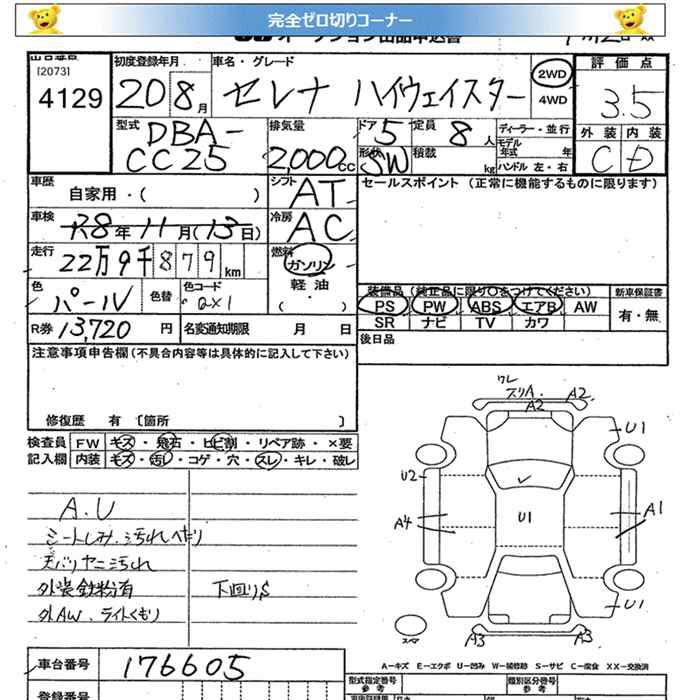 完全ゼロ切りコーナー
[2073]
4129
初度登録年月
20 8月
車名・グレード
セレナ ハイウェイスター
2WD
4WD
評価点
3.5
外装 内装
C D
型式
DBA-
CC25
排気量
2,000cc
ドア 5
定員 8人
形状 SW
積載 kg
ディーラー・並行
モデル年式 年
ハンドル 左・右
車歴
自家用・( )
シフト
AT
車検
R8年11月(13日)
冷房
AC
走行
22万9千879km
燃料
ガソリン
軽油
( )
色
パール
色替
色コード
QX1
R券 13,720円
名変通知期限 月 日
セールスポイント (正常に機能するものに限ります)
装備品 (純正品に限り○をつけてください)
PS PW ABS エアB AW
SR ナビ TV カワ
新車保証書
有・無
後日品
注意事項申告欄(不具合内容等は具体的に記入して下さい)
修復歴 有 [箇所 ]
検査員 FW キズ・飛石・ヒビ割・リペア跡・×要
記入欄 内装 キズ・汚れ・コゲ・穴・スレ・キレ・破レ
A.U
シートしみ.汚れへたり
天バリヤニ汚れ
外装鉄粉有 下回りS
外AW.ライトくもり
ワレ
スリA. A2
A2
U1
U2
A4
U1
A1
U1
A3
A3
スペア
A-キズ E-エクボ U-凹み W-補修跡 S-サビ C-腐食 XX-交換済
車台番号
176605
登録番号
型式指定番号
参考
類別区分番号
参考